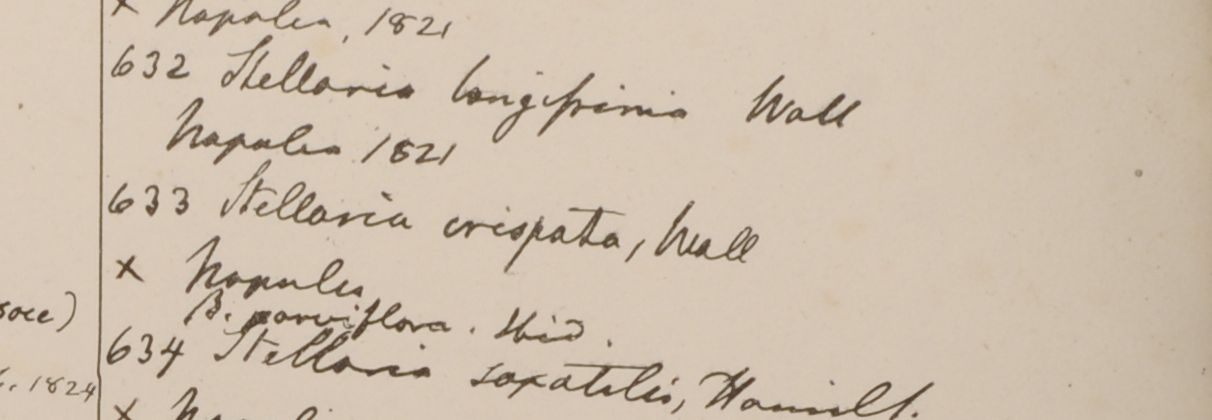 x Napalia, 1821
632 Stellaria longissima Wall
Napalia 1821
633 Stellaria crispata, Wall
x Napalia
B. parviflora. Ibid.
634 Stellaria saxatilis, Hamilt.
1824
x